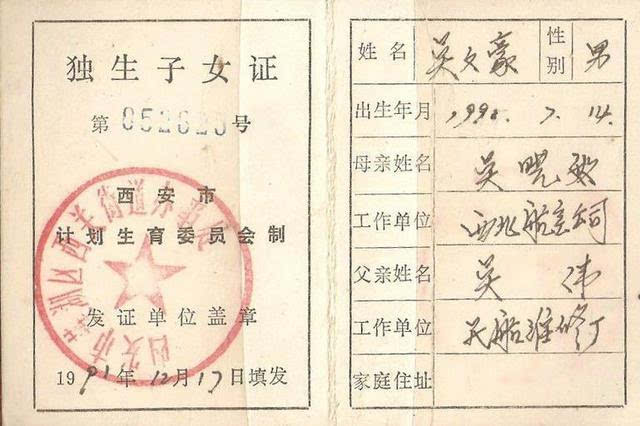 独生子女证
第 052620 号
西安市
计划生育委员会制
发证单位盖章
1991年12月17日填发
姓名 吴文豪 性别 男
出生年月 1991. 7. 14.
母亲姓名 吴晓敏
工作单位 西北航空公司
父亲姓名 吴伟
工作单位 维修厂
家庭住址